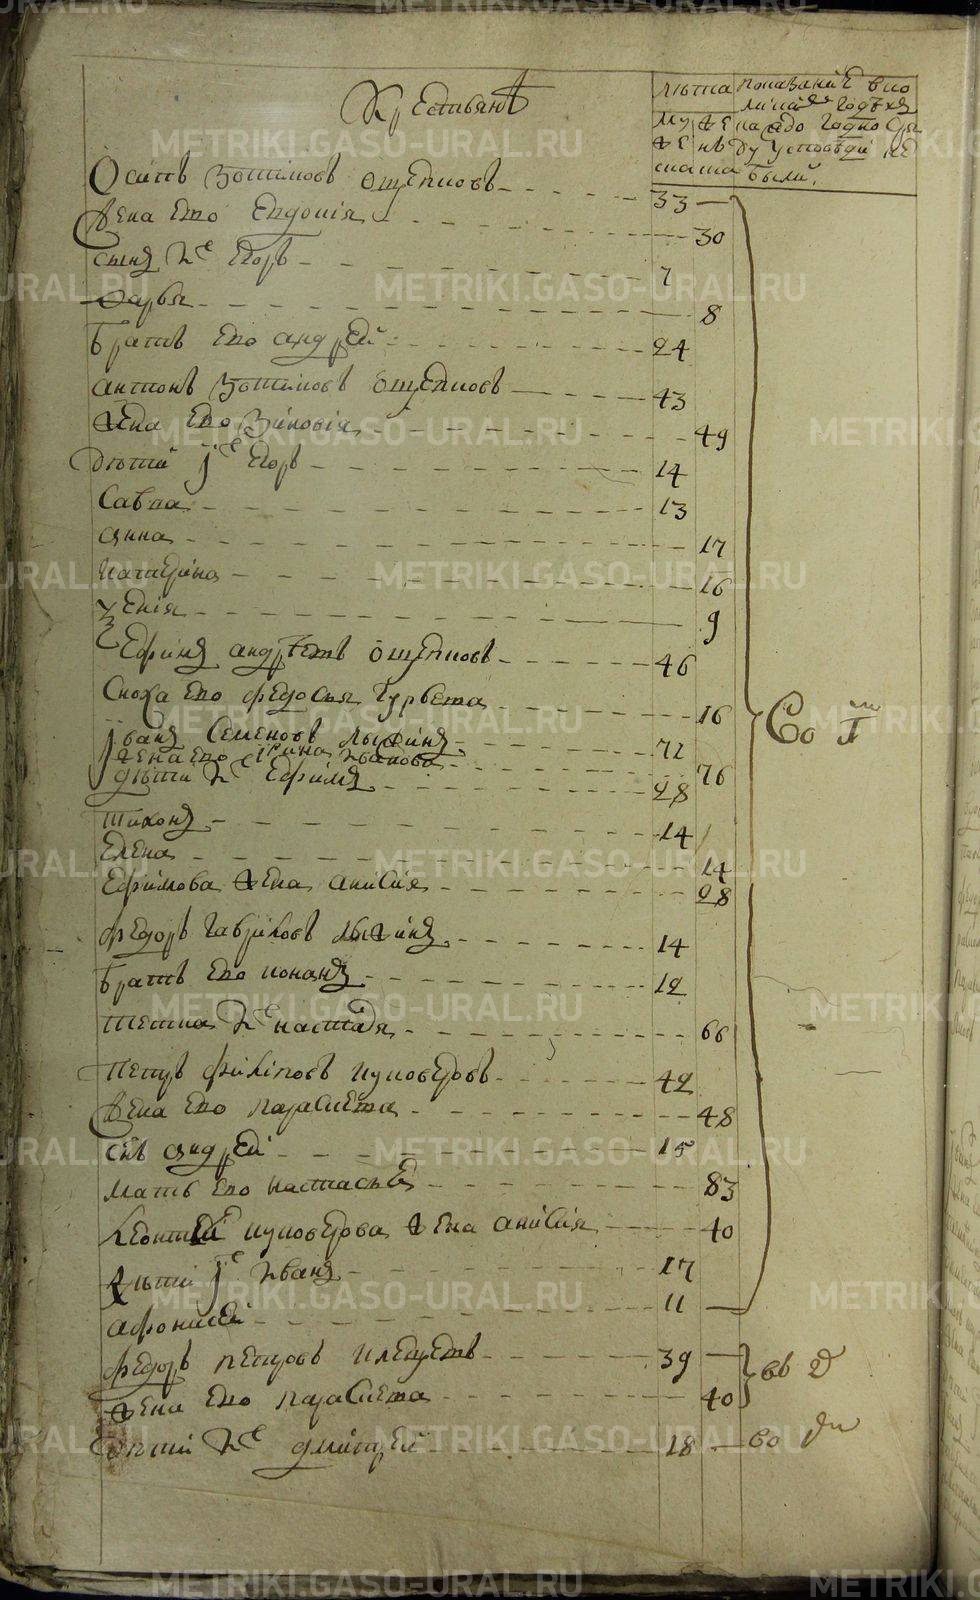 Крестьянъ
лѣта
показание в ко
годѣхъ
му
жена
до
годно
были.
Осипъ Зотимовъ Ощепковъ 33
Жена ево Евдокия 30
сынъ их Егоръ 7
Дарья 8
братъ ево андрей 24
антонъ Зотимовъ Ощепковъ 43
жена ево Зиновия 49
дѣти их Егоръ 14
Савва 13
анна 17
катерина 16
Ксения 9
Ефимъ андрѣевъ Ощепковъ 46
Сноха ево федосья Гурьева 16
Иванъ Семеновъ лыжинъ 72
жена ево ирина иванова 76
дѣти их Ефимъ 28
тихонъ 14
Елена 14
Ефимова жена анисия 28
федоръ Гавриловъ лыжинъ 14
братъ ево кононъ 12
тетка их настасья 66
петръ филиповъ куковеровъ 42
Жена ево параскева 48
снъ андрей 15
мать ево настасья 83
леонтея куковерова жена анисия 40
дѣти их иванъ 17
афонасей 11
Во I
федоръ петровъ клещевъ 39
жена ево параскева 40
въ д
дѣти их дмитрей 18
во
METRIKI.GASO-URAL.RU